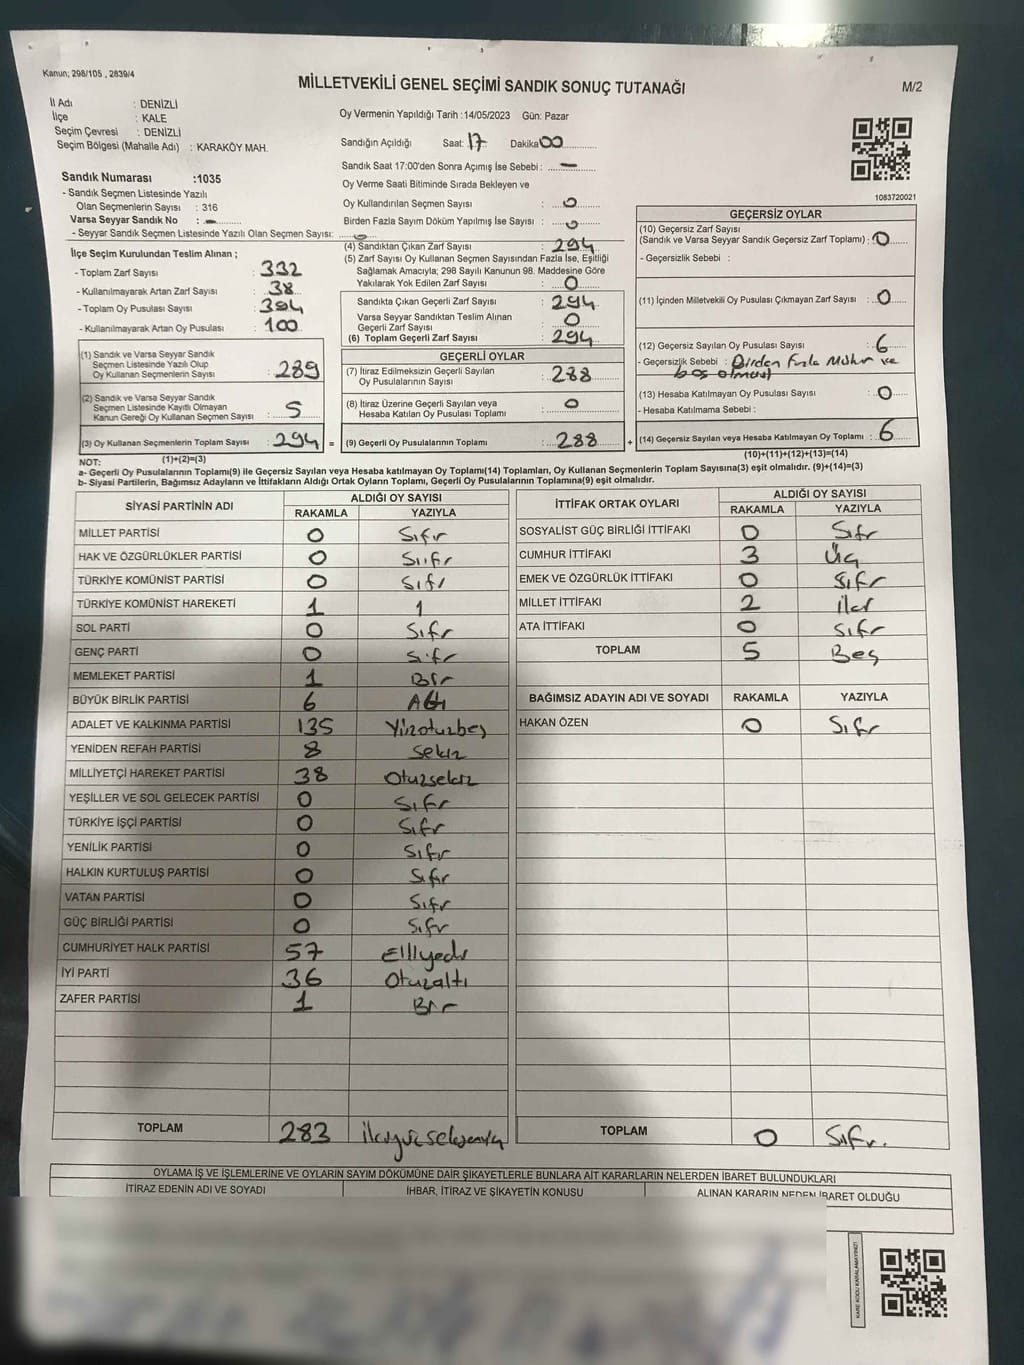 Kanun; 298/105 , 2839/4
MİLLETVEKİLİ GENEL SEÇİMİ SANDIK SONUÇ TUTANAĞI
M/2
İl Adı : DENİZLİ
İlçe : KALE
Seçim Çevresi : DENİZLİ
Seçim Bölgesi (Mahalle Adı) : KARAKÖY MAH.
Oy Vermenin Yapıldığı Tarih :14/05/2023 Gün: Pazar
Sandığın Açıldığı Saat: 17 Dakika 00
Sandık Saat 17:00'den Sonra Açımış İse Sebebi : —
Oy Verme Saati Bitiminde Sırada Bekleyen ve
Oy Kullandırılan Seçmen Sayısı : 0
Birden Fazla Sayım Döküm Yapılmış İse Sayısı : 0
1083720021
Sandık Numarası :1035
- Sandık Seçmen Listesinde Yazılı
Olan Seçmenlerin Sayısı : 316
Varsa Seyyar Sandık No : -
- Seyyar Sandık Seçmen Listesinde Yazılı Olan Seçmen Sayısı: 0
İlçe Seçim Kurulundan Teslim Alınan ;
- Toplam Zarf Sayısı : 332
- Kullanılmayarak Artan Zarf Sayısı : 38
- Toplam Oy Pusulası Sayısı : 394
- Kullanılmayarak Artan Oy Pusulası : 100
(1) Sandık ve Varsa Seyyar Sandık
Seçmen Listesinde Yazılı Olup
Oy Kullanan Seçmenlerin Sayısı : 289
(2) Sandık ve Varsa Seyyar Sandık
Seçmen Listesinde Kayıtlı Olmayan
Kanun Gereği Oy Kullanan Seçmen Sayısı : 5
(3) Oy Kullanan Seçmenlerin Toplam Sayısı : 294 =
(1)+(2)=(3)
(4) Sandıktan Çıkan Zarf Sayısı : 294
(5) Zarf Sayısı Oy Kullanan Seçmen Sayısından Fazla İse, Eşitliği
Sağlamak Amacıyla; 298 Sayılı Kanunun 98. Maddesine Göre
Yakılarak Yok Edilen Zarf Sayısı : 0
Sandıkta Çıkan Geçerli Zarf Sayısı : 294
Varsa Seyyar Sandıktan Teslim Alınan
Geçerli Zarf Sayısı : 0
(6) Toplam Geçerli Zarf Sayısı : 294
GEÇERLİ OYLAR
(7) İtiraz Edilmeksizin Geçerli Sayılan
Oy Pusulalarının Sayısı : 288
(8) İtiraz Üzerine Geçerli Sayılan veya
Hesaba Katılan Oy Pusulası Toplamı : 0
(9) Geçerli Oy Pusulalarının Toplamı : 288 +
GEÇERSİZ OYLAR
(10) Geçersiz Zarf Sayısı
(Sandık ve Varsa Seyyar Sandık Geçersiz Zarf Toplamı) : 0
- Geçersizlik Sebebi :
(11) İçinden Milletvekili Oy Pusulası Çıkmayan Zarf Sayısı : 0
(12) Geçersiz Sayılan Oy Pusulası Sayısı : 6
- Geçersizlik Sebebi : Birden Fazla Mühür ve
boş olması
(13) Hesaba Katılmayan Oy Pusulası Sayısı : 0
- Hesaba Katılmama Sebebi :
(14) Geçersiz Sayılan veya Hesaba Katılmayan Oy Toplamı : 6
(10)+(11)+(12)+(13)=(14)
NOT:
a- Geçerli Oy Pusulalarının Toplamı(9) ile Geçersiz Sayılan veya Hesaba katılmayan Oy Toplamı(14) Toplamları, Oy Kullanan Seçmenlerin Toplam Sayısına(3) eşit olmalıdır. (9)+(14)=(3)
b- Siyasi Partilerin, Bağımsız Adayların ve İttifakların Aldığı Ortak Oyların Toplamı, Geçerli Oy Pusulalarının Toplamına(9) eşit olmalıdır.
SİYASİ PARTİNİN ADI ALDIĞI OY SAYISI
RAKAMLA YAZIYLA
MİLLET PARTİSİ 0 Sıfır
HAK VE ÖZGÜRLÜKLER PARTİSİ 0 Sıfır
TÜRKİYE KOMÜNİST PARTİSİ 0 Sıfır
TÜRKİYE KOMÜNİST HAREKETİ 1 1
SOL PARTİ 0 Sıfır
GENÇ PARTİ 0 Sıfır
MEMLEKET PARTİSİ 1 Bir
BÜYÜK BİRLİK PARTİSİ 6 Altı
ADALET VE KALKINMA PARTİSİ 135 Yüzotuzbeş
YENİDEN REFAH PARTİSİ 8 Sekiz
MİLLİYETÇİ HAREKET PARTİSİ 38 Otuzsekiz
YEŞİLLER VE SOL GELECEK PARTİSİ 0 Sıfır
TÜRKİYE İŞÇİ PARTİSİ 0 Sıfır
YENİLİK PARTİSİ 0 Sıfır
HALKIN KURTULUŞ PARTİSİ 0 Sıfır
VATAN PARTİSİ 0 Sıfır
GÜÇ BİRLİĞİ PARTİSİ 0 Sıfır
CUMHURİYET HALK PARTİSİ 57 Elliyedi
İYİ PARTİ 36 Otuzaltı
ZAFER PARTİSİ 1 Bir
TOPLAM 283
İTTİFAK ORTAK OYLARI ALDIĞI OY SAYISI
RAKAMLA YAZIYLA
SOSYALİST GÜÇ BİRLİĞİ İTTİFAKI 0 Sıfır
CUMHUR İTTİFAKI 3 Üç
EMEK VE ÖZGÜRLÜK İTTİFAKI 0 Sıfır
MİLLET İTTİFAKI 2 iki
ATA İTTİFAKI 0 Sıfır
TOPLAM 5 Beş
BAĞIMSIZ ADAYIN ADI VE SOYADI RAKAMLA YAZIYLA
HAKAN ÖZEN 0 Sıfır
TOPLAM 0 Sıfır.
OYLAMA İŞ VE İŞLEMLERİNE VE OYLARIN SAYIM DÖKÜMÜNE DAİR ŞİKAYETLERLE BUNLARA AİT KARARLARIN NELERDEN İBARET BULUNDUKLARI
İTİRAZ EDENİN ADI VE SOYADI İHBAR, İTİRAZ VE ŞİKAYETİN KONUSU ALINAN KARARIN NEDEN İBARET OLDUĞU
KARE KODU KARALAMAYINIZ!